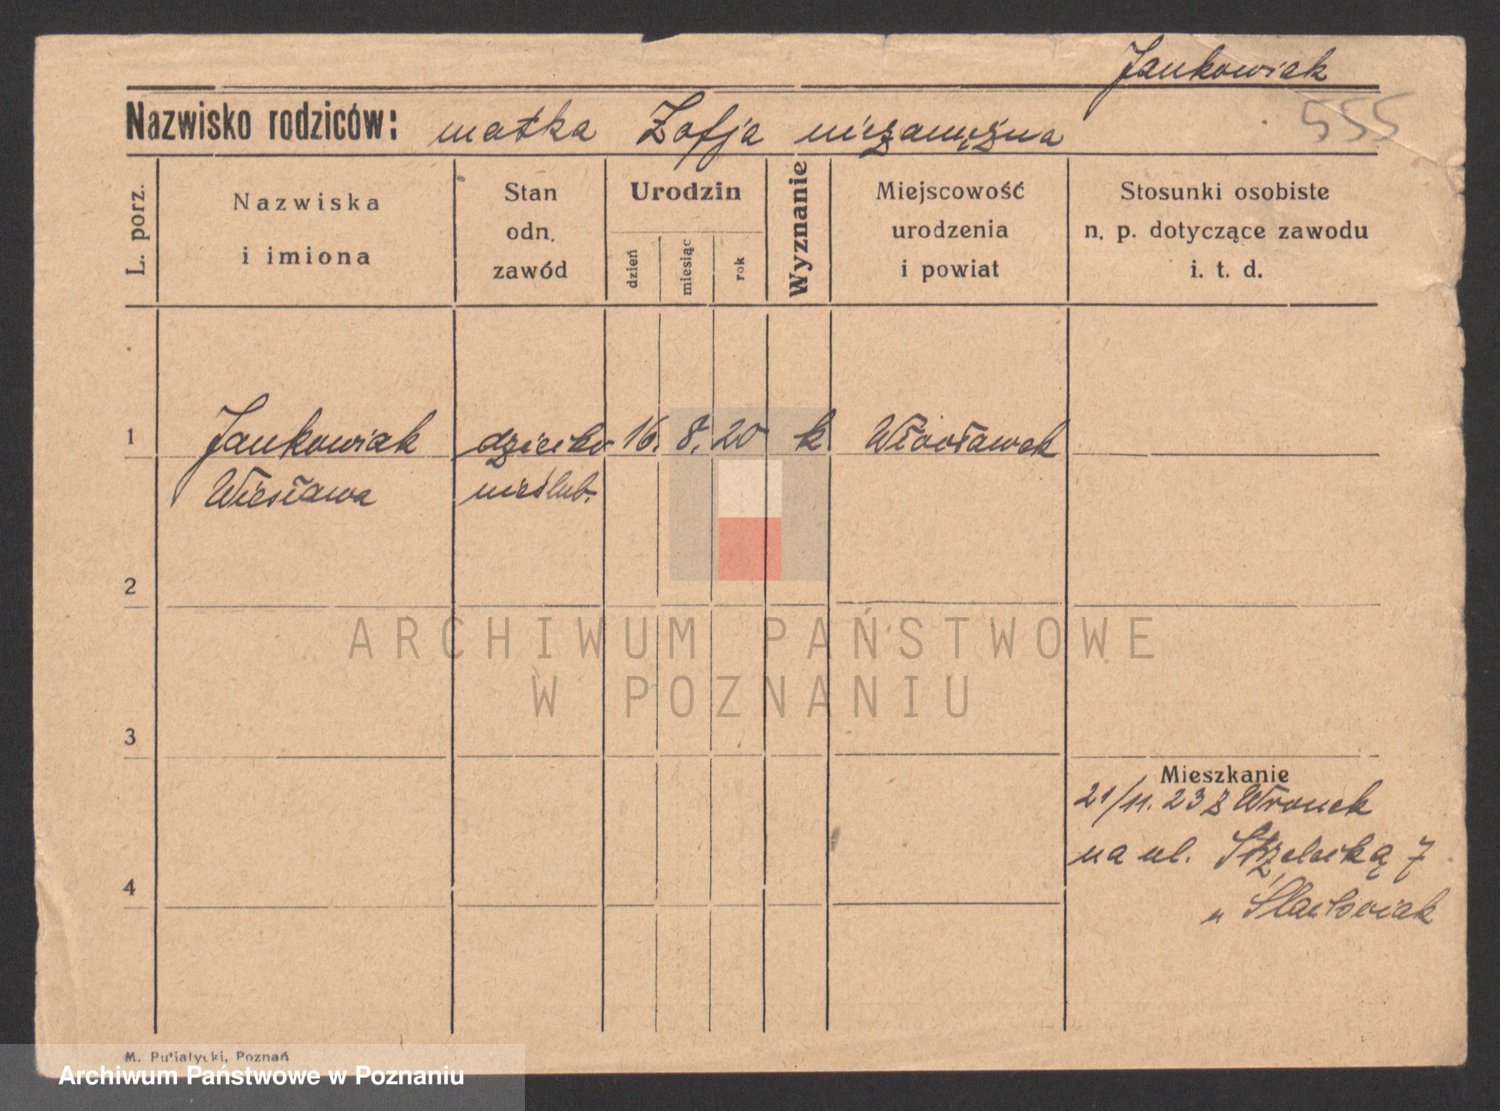 Jankowiak
555
Nazwisko rodziców: matka Zofja niezamężna
L. porz.
Nazwiska
i imiona
Stan
odn.
zawód
Urodzin
dzień
miesiąc
rok
Wyznanie
Miejscowość
urodzenia
i powiat
Stosunki osobiste
n. p. dotyczące zawodu
i. t. d.
1 Jankowiak dziecko 16. 8. 20 k Włocławek
Wiesława nieślub.
2
ARCHIWUM PAŃSTWOWE
W POZNANIU
3
Mieszkanie
21/11. 23 z Wronek
na ul. Strzelecką 7
4
M. Putiatycki, Poznań
Archiwum Państwowe w Poznaniu